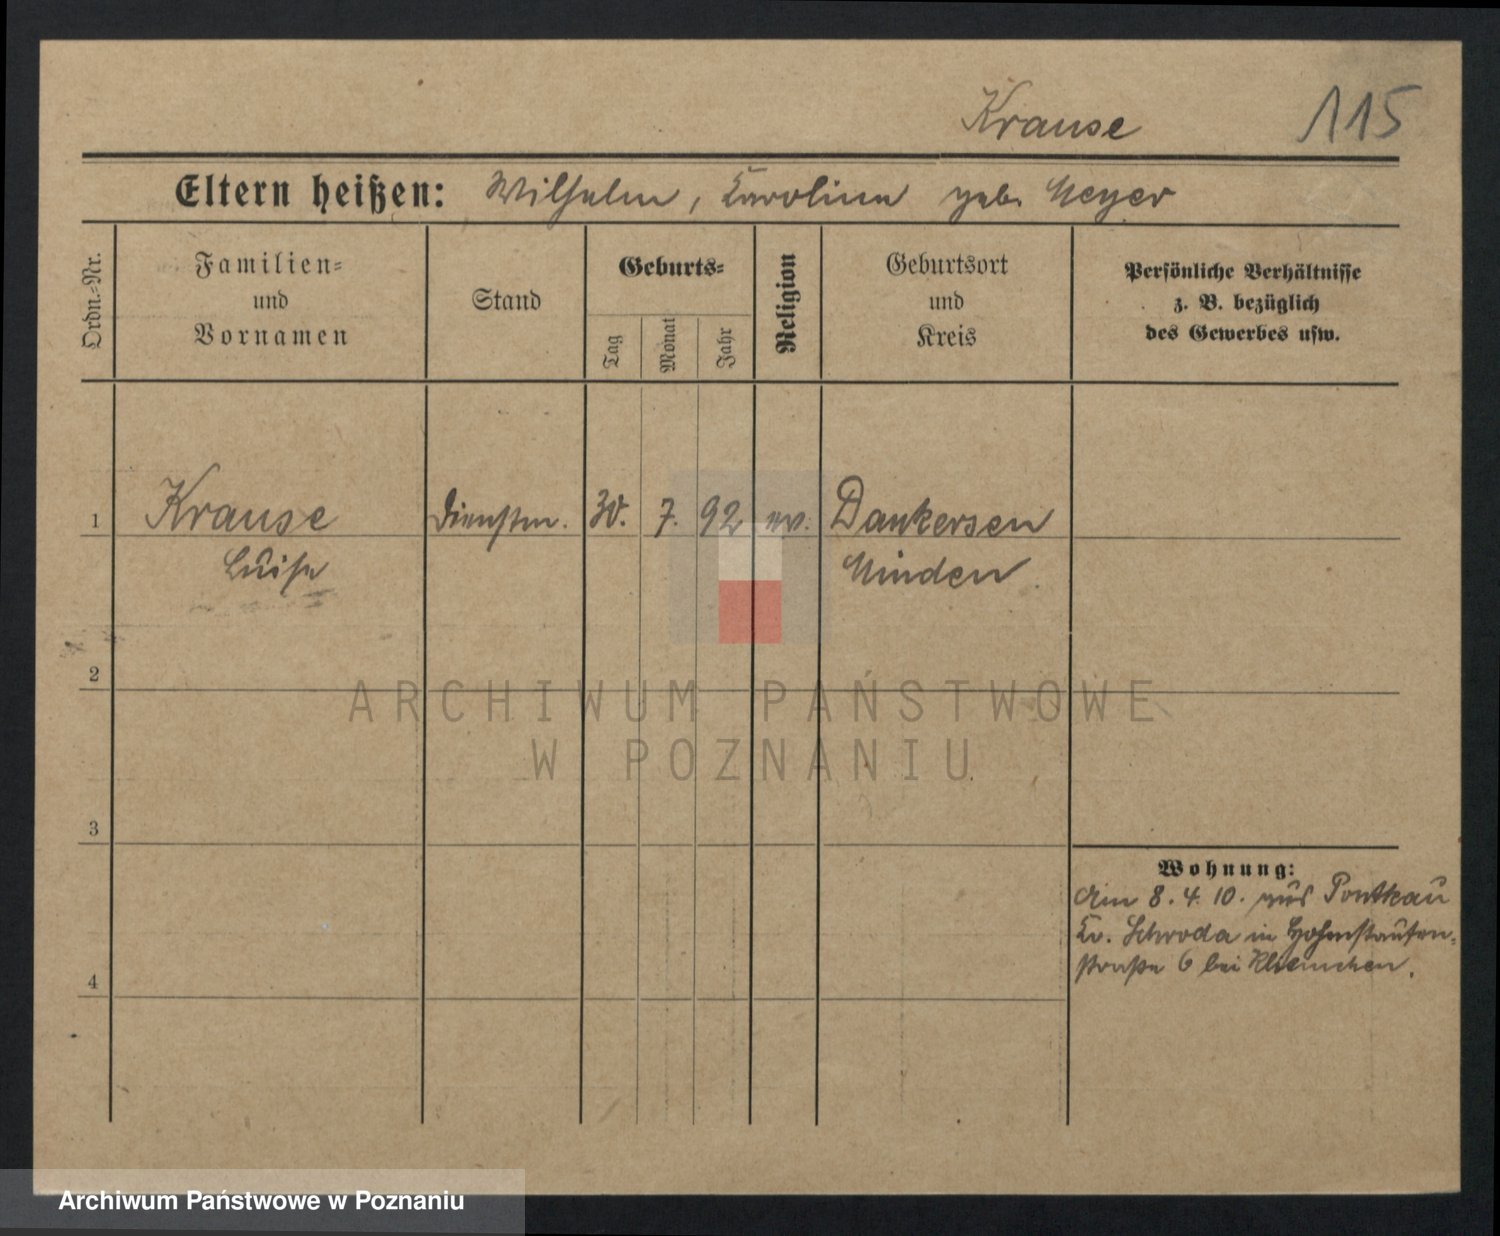 Krause 115
Eltern heißen: Wilhelm, Karoline geb. Meyer
Ordn.-Nr.
Familien-
und
Vornamen
Stand
Geburts-
Tag
Monat
Jahr
Religion
Geburtsort
und
Kreis
Persönliche Verhältnisse
z. B. bezüglich
des Gewerbes usw.
1 Krause Dienstm. 30. 7. 92 ev. Dankersen
Luise Minden
2
ARCHIWUM PAŃSTWOWE
W POZNANIU
3
Wohnung:
Am 8. 4. 10. aus
Kr. Schroda in Hohenstaufen-
straße 6 bei
4
Archiwum Państwowe w Poznaniu